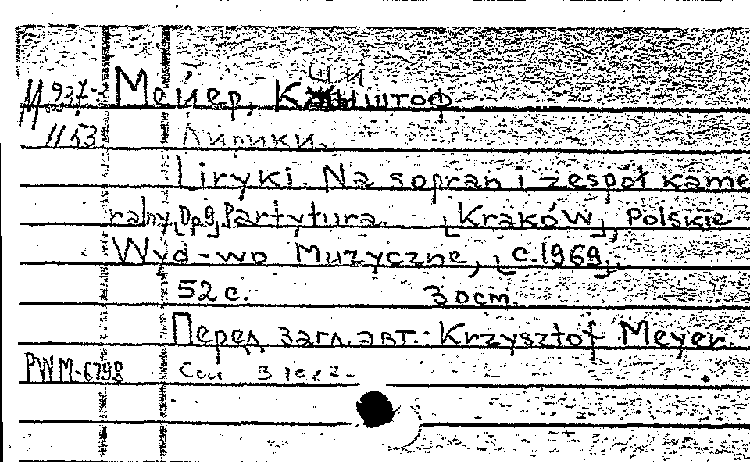 М 937-2 Мейер, Кшиштоф
1153 Лирики.
Liryki. Na sopran i zespół kame
ralny, Op 9, Partytura. [Kraków], Polskie
Wyd-wo Muzyczne, [c. 1969].
52 с. 30 cm.
Перед загл. авт.: Krzysztof Meyer.
PWM-6798